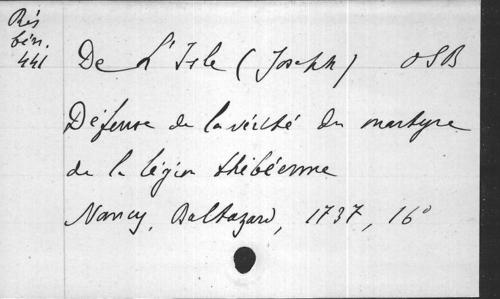 Rés
bén.
441
De L'Isle (Joseph) OSB
Défense de la vérité du martyre
de la légion thébéenne
Nancy, Baltazard, 1737, 16°